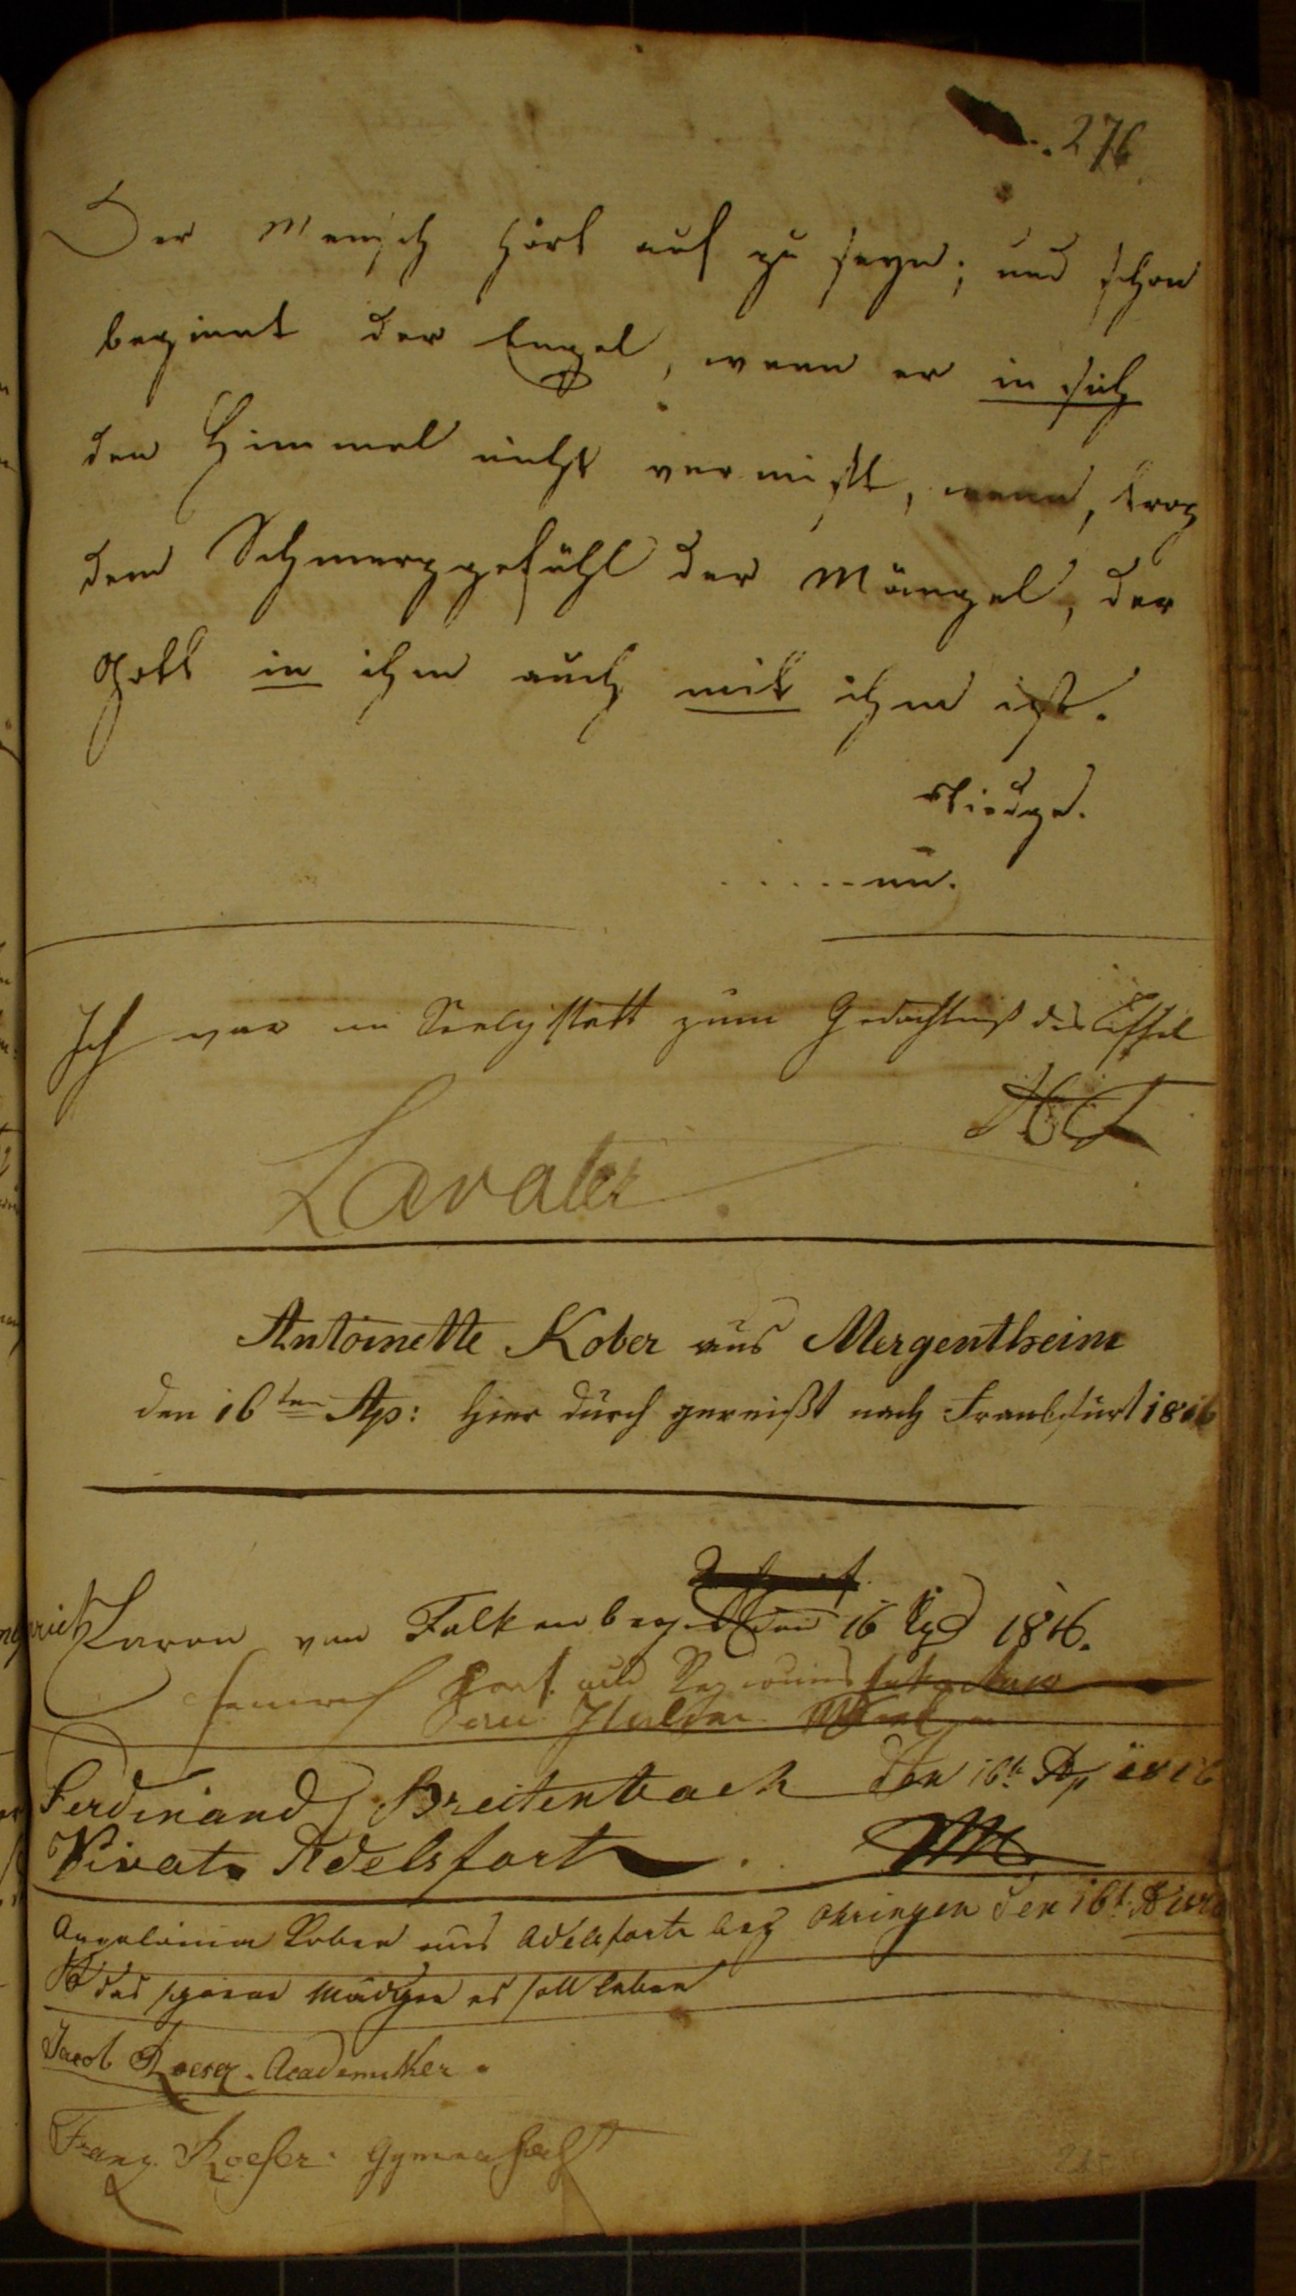 276
Der Mensch hört auf zu seyn; und schon
beginnt der Engel, wenn er in sich
den Himmel nicht vermißt, wenn, troz
dem Schmerzgefühl der Mängel, der
Gott in ihm auch mit ihm ist.
Tiedge.
Ich war in Seeligstatt zum Gedächtniß des
Lavater
Antoinette Kober aus Mergentheim
den 16ten Ap: hier durch gereißt nach Frankfurt 1816
von Falkenberg den 16 1816.
Ferdinand Breitenbach den 16t Ap 1816
Vivat Adelsfort
Kober aus Adelsforts bey Ohringen den 16t
das schöne Mädgen es soll leben
Jacob Roeser. Academiker.
Franz Roeser. Gymnasiast